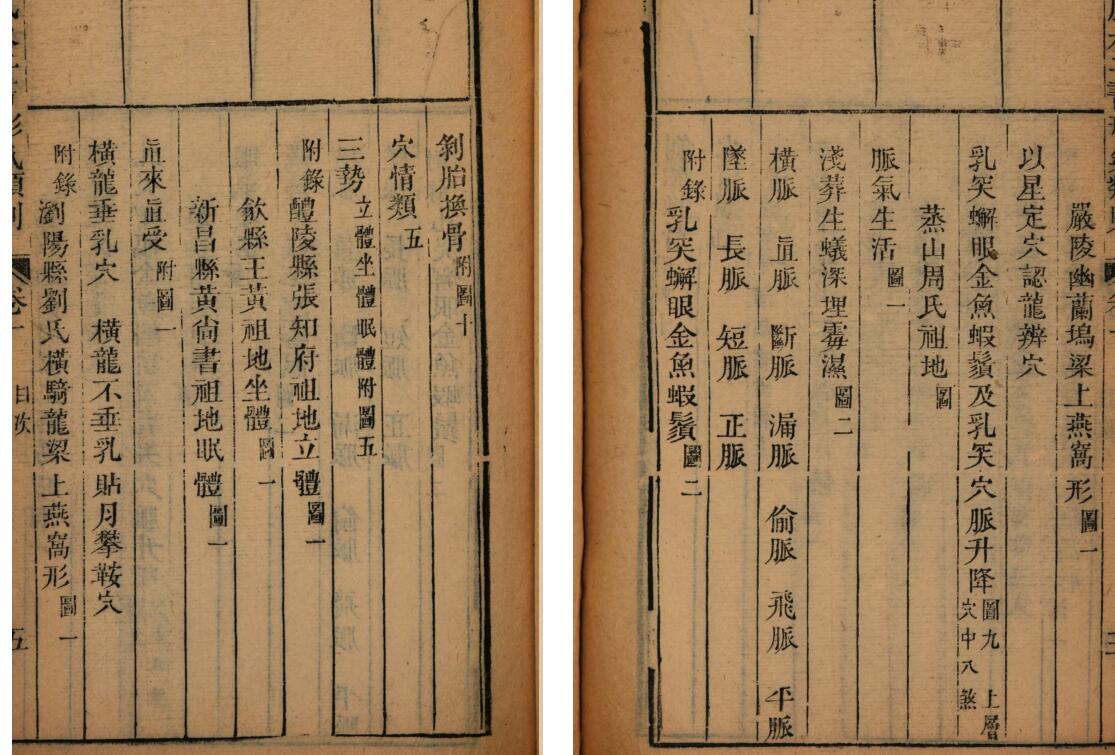 剝胎換骨附圖十
穴情類 五
三勢 立體坐體眠體附圖五
附錄 醴陵縣張知府祖地立體圖一
歙縣王黃祖地坐體圖一
新昌縣黃尙書祖地眠體圖一
直來直受附圖一
橫龍垂乳穴 橫龍不垂乳貼月攀鞍穴
附錄瀏陽縣劉氏橫騎龍梁上燕窩形圖一
目次 五
嚴陵幽蘭塢梁上燕窩形圖一
以星定穴認龍辨穴
乳突蠏眼金魚蝦鬚及乳突穴脈升降圖九 上層穴中八煞
蒸山周氏祖地圖
脈氣生活圖一
淺葬生蟻深埋霉濕圖二
橫脈 直脈 斷脈 漏脈 偷脈 飛脈 平脈
墜脈 長脈 短脈 正脈
附錄乳突蠏眼金魚蝦鬚圖二